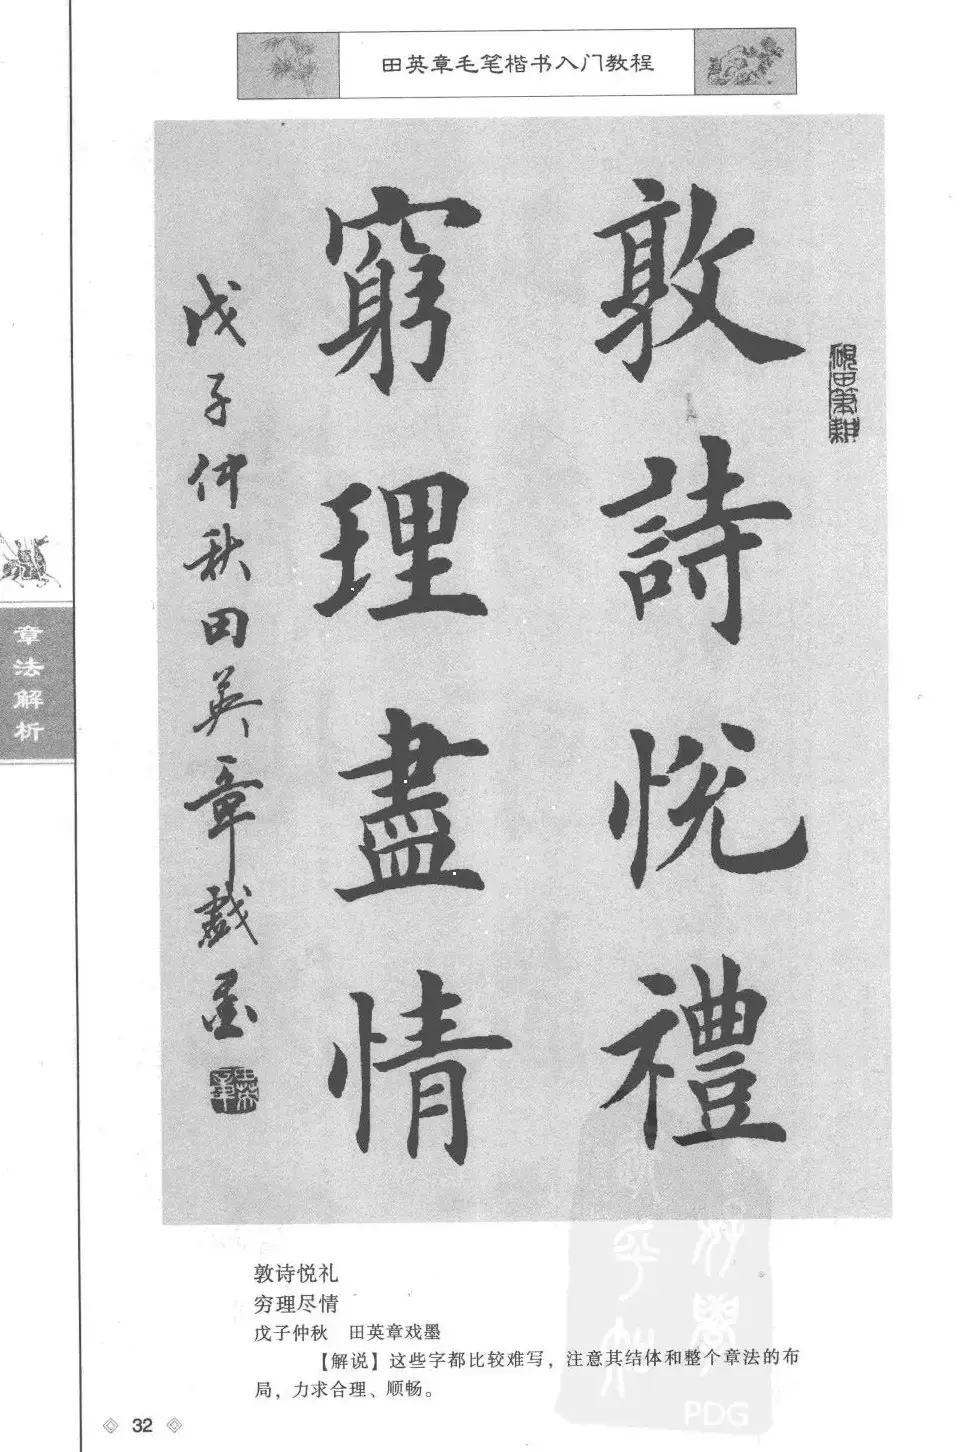 田英章毛笔楷书入门教程
敦詩悦禮
窮理盡情
戊子仲秋田英章戯墨
砚田笔耕
章法解析
敦诗悦礼
穷理尽情
戊子仲秋　田英章戏墨
【解说】这些字都比较难写，注意其结体和整个章法的布
局，力求合理、顺畅。
32
PDG